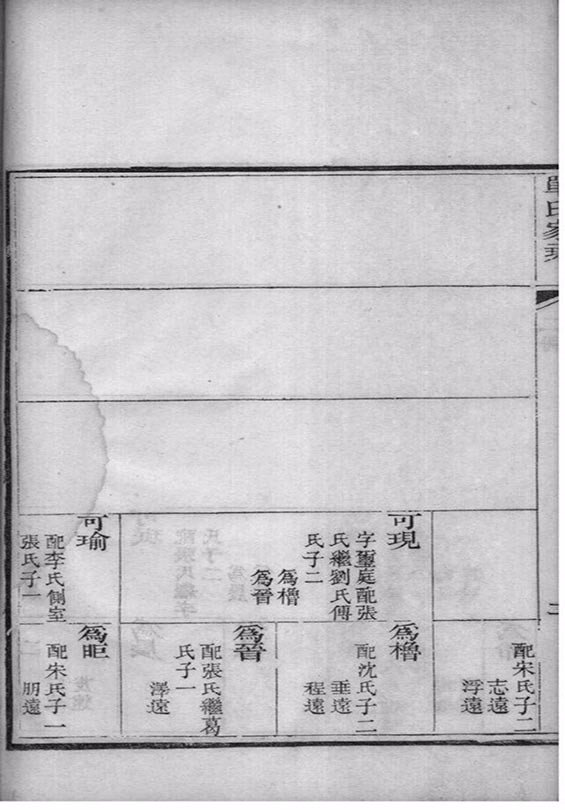 單氏家乘
二
配宋氏子二
志遠
浮遠
可現
字璽庭配張
氏繼劉氏傅
氏子二
爲櫓
爲晉
爲櫓
配沈氏子二
垂遠
程遠
爲晉
配張氏繼葛
氏子一
澤遠
可瑜
配李氏側室
張氏子一
爲昛
配宋氏子一
朋遠